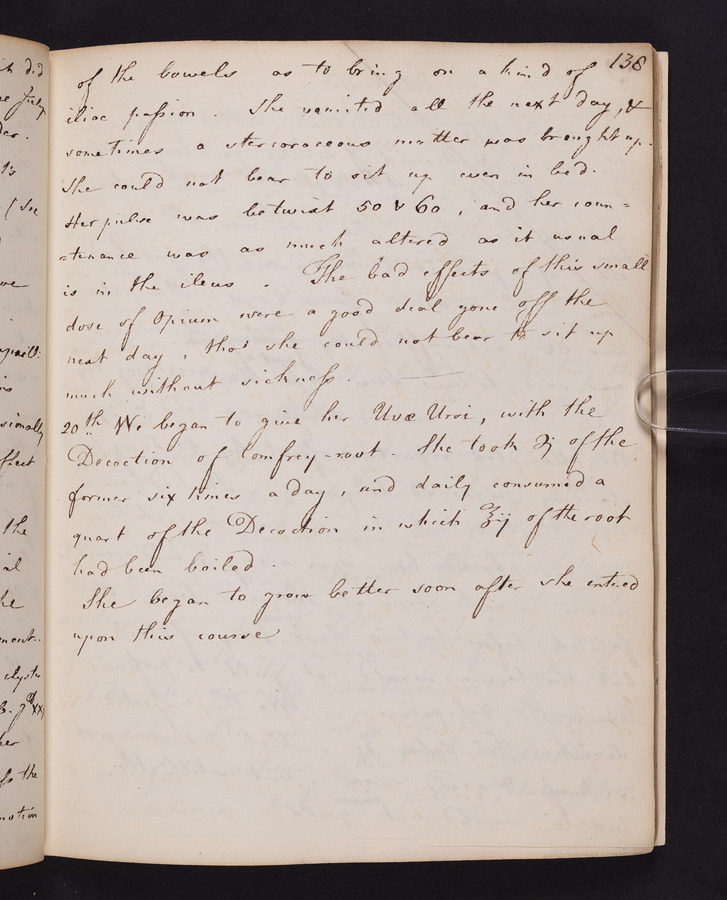 138
of the bowels as to bring on a kind of
iliac passion. She vomited all the next day, &
sometimes a stercoraceous matter was brought up.
She could not bear to sit up even in bed.
Her pulse was betwixt 50 & 60, and her coun=
=tenance was as much altered as it usual
is in the ileus. The bad effects of this small
dose of Opium were a good deal gone off the
next day, tho' she could not bear to sit up
much without sickness.
20th We began to give her Uvæ Ursi, with the
Decoction of Comfrey-root. She took ʒj of the
former six times a day, and daily consumed a
quart of the Decoction in which ℥ij of the root
had been boiled.
She began to grow better soon after she entered
upon this course